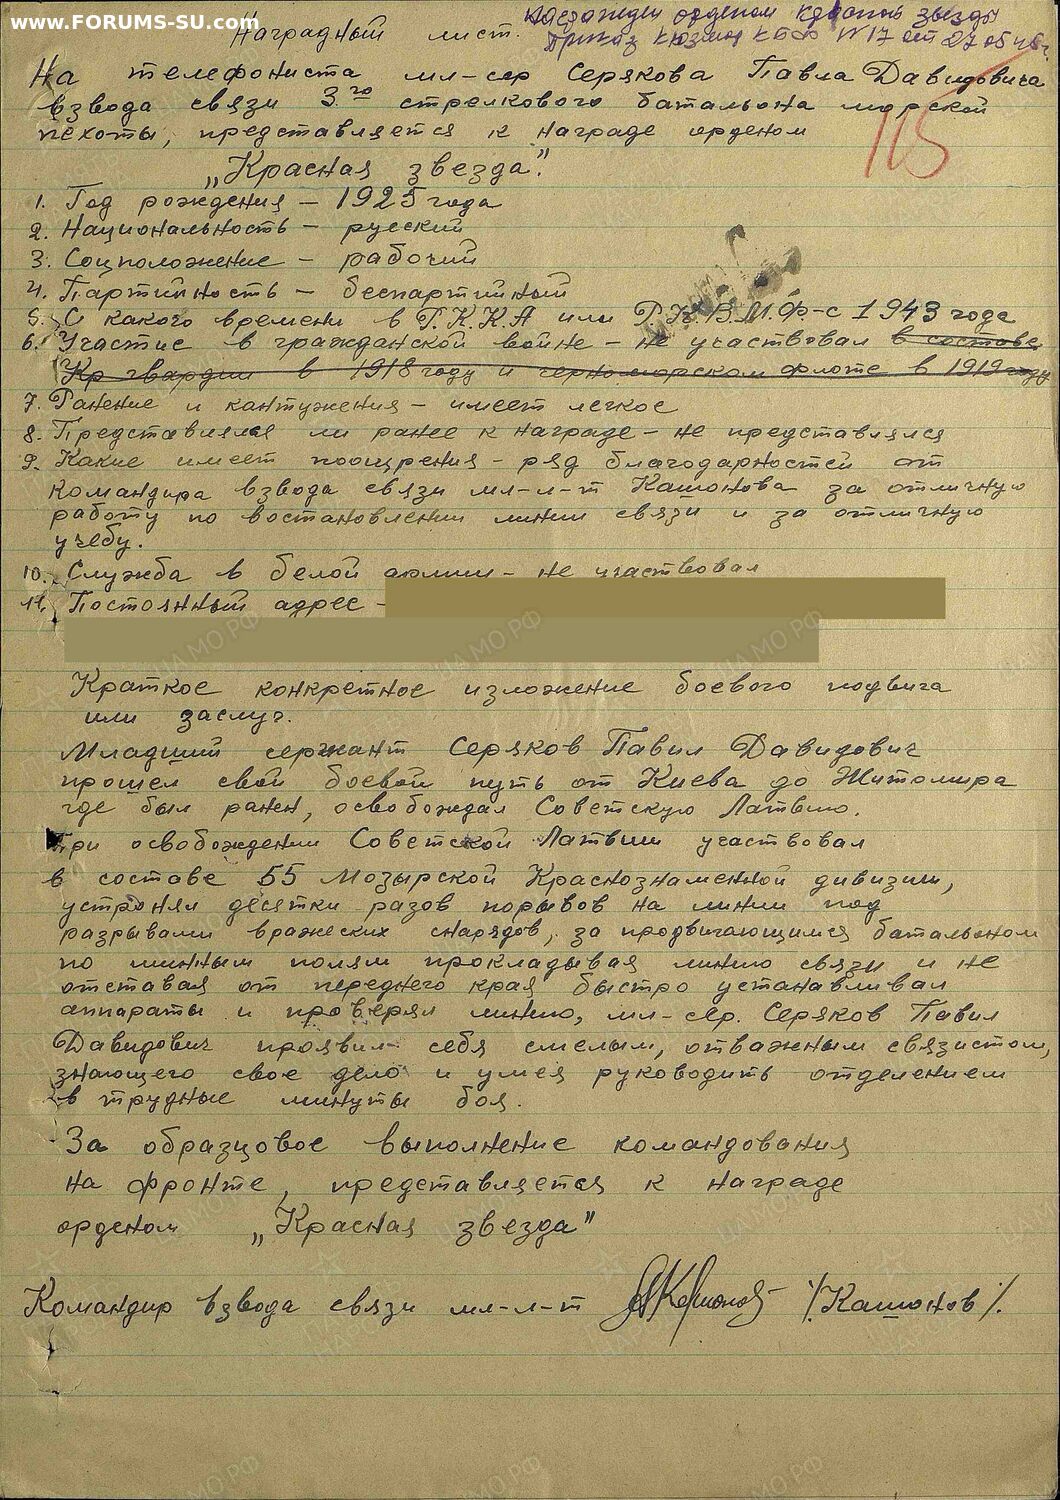 www.FORUMS-SU.com
Награжден орденом красной звезды
Наградный лист.
Приказ КБФ №17 от 27 05 45г.
На телефониста мл-сер Серякова Павла Давидовича
взвода связи 3го стрелкового батальона морской
пехоты, представляется к награде орденом
115
„Красная звезда".
1. Год рождения – 1925 года
2. Национальность – русский
3. Соцположение – рабочий
4. Партийность – беспартийный
5. С какого времени в Р.К.К.А или Р.К.В.М.Ф-с 1943 года
6. Участие в гражданской войне – не участвовал в составе
Кр гвардии в 1918 году и черноморском флоте в 1919 году
7. Ранение и кантужения – имеет легкое
8. Представлялся ли ранее к награде – не представлялся
9. Какие имеет поощрения – ряд благодарностей от
командира взвода связи мл-л-т Кашонова за отличную
работу по востановлении линии связи и за отличную
учебу.
10. Служба в белой армии – не участвовал
11. Постоянный адрес –
Краткое конкретное изложение боевого подвига
или заслуг.
Младший сержант Серяков Павил Давидович
прошел свой боевой путь от Киева до Житомира
где был ранен, освобождал Советскую Латвию.
При освобождении Советской Латвии участвовал
в составе 55 Мозырской Краснознаменной дивизии,
устронял десятки разов порывов на линии под
разрывами вражеских снарядов, за продвигающимися батальоном
по минным полям прокладывая линию связи и не
отставая от переднего края быстро устанавливал
аппараты и проверял линию, мл-сер. Серяков Павил
Давидович проявил себя смелым, отважным связистом,
знающего свое дело и умея руководить отделением
в трудные минуты боя.
За образцовое выполнение командования
на фронте, представляется к награде
орденом „Красная звезда"
Командир взвода связи мл-л-т /Кашонов/.